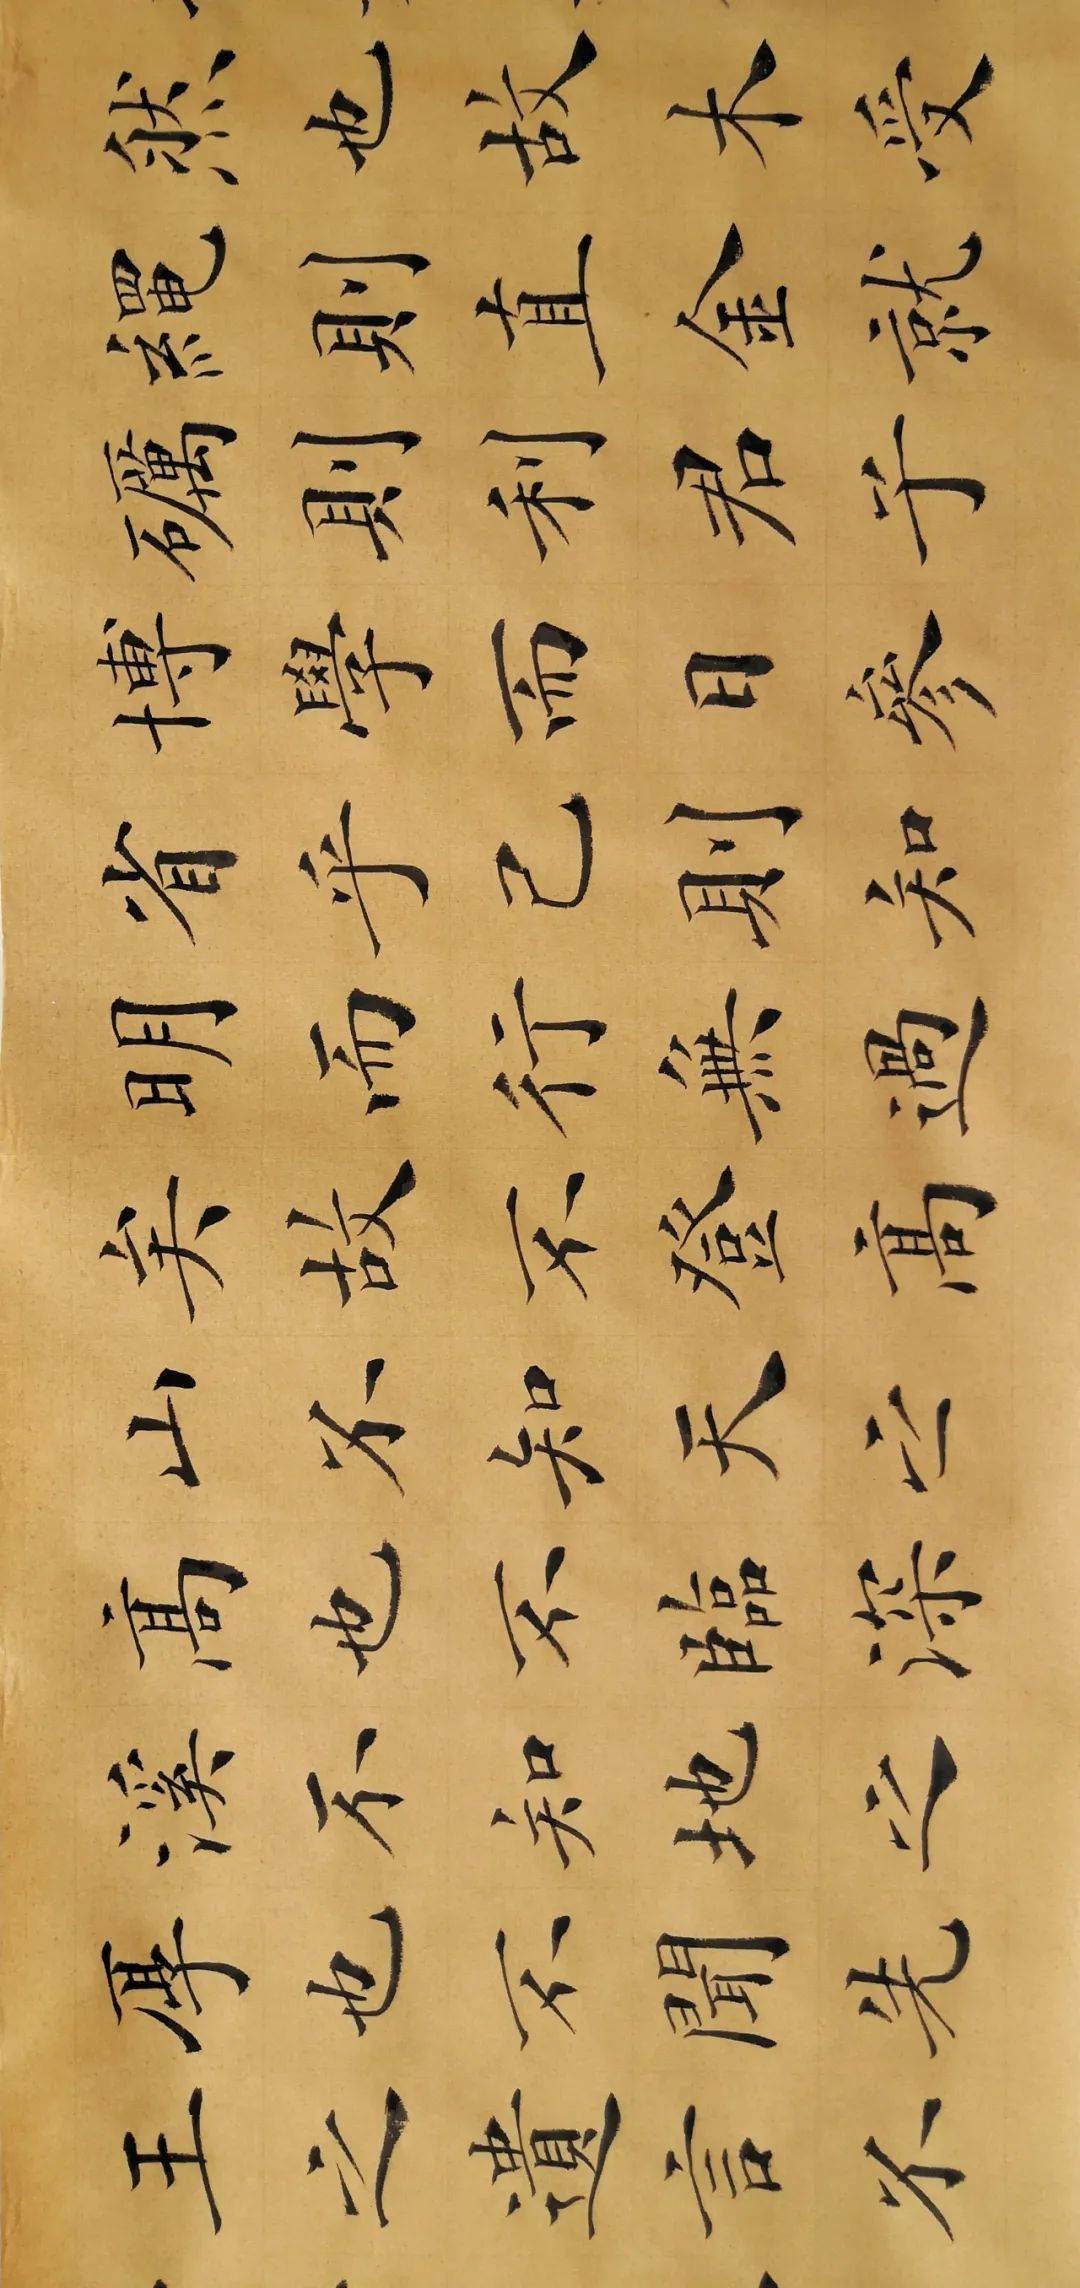 然也故木受
繩則直金就
礪則利君子
博學而日參
省乎己則知
明而行無過
矣故不登高
山不知天之
高也不臨深
溪不知地之
厚也不聞先
王之遺言不